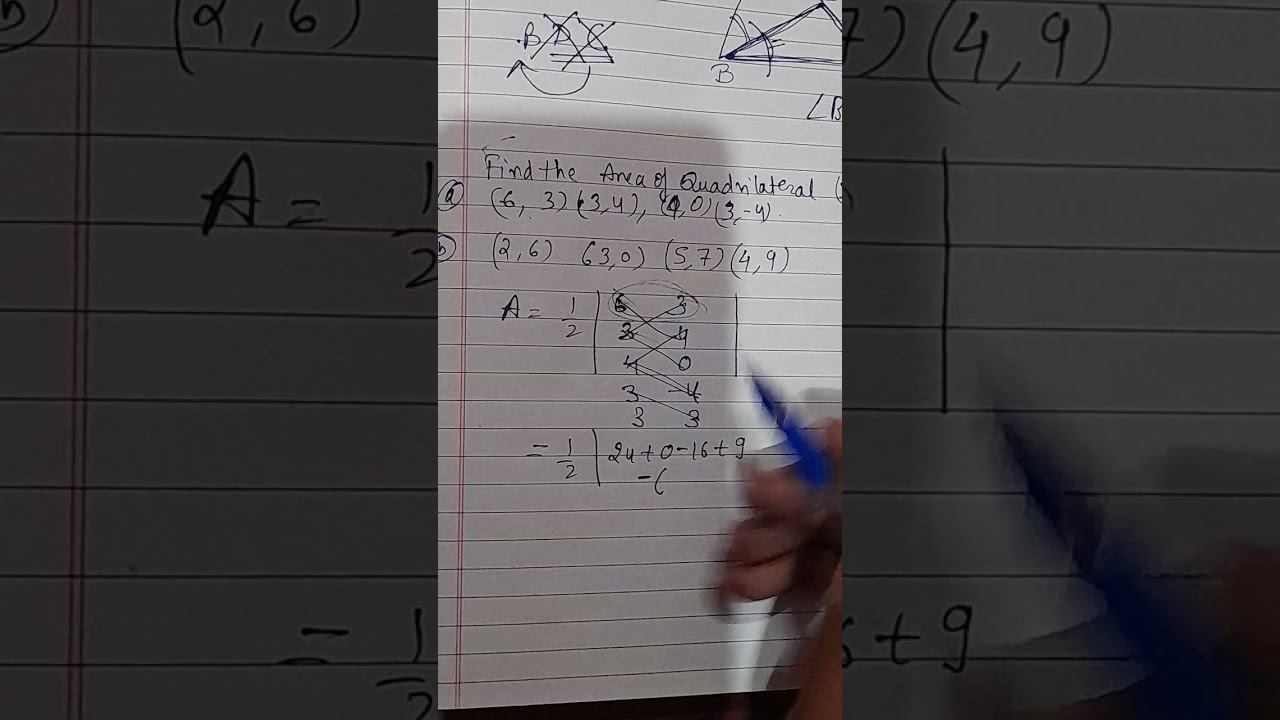 B D C
B
∠B
Find the Area of Quadrilateral
(a) (6, 3) (3,4), (4,0) (3,-4).
(b) (2,6) (3,0) (5,7) (4,9)
A = 1/2 | 6 3
3 4
4 0
3 -4
3 3 |
= 1/2 | 24+0-16+9
-(